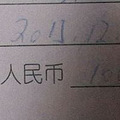 2015.12.
人民币 10